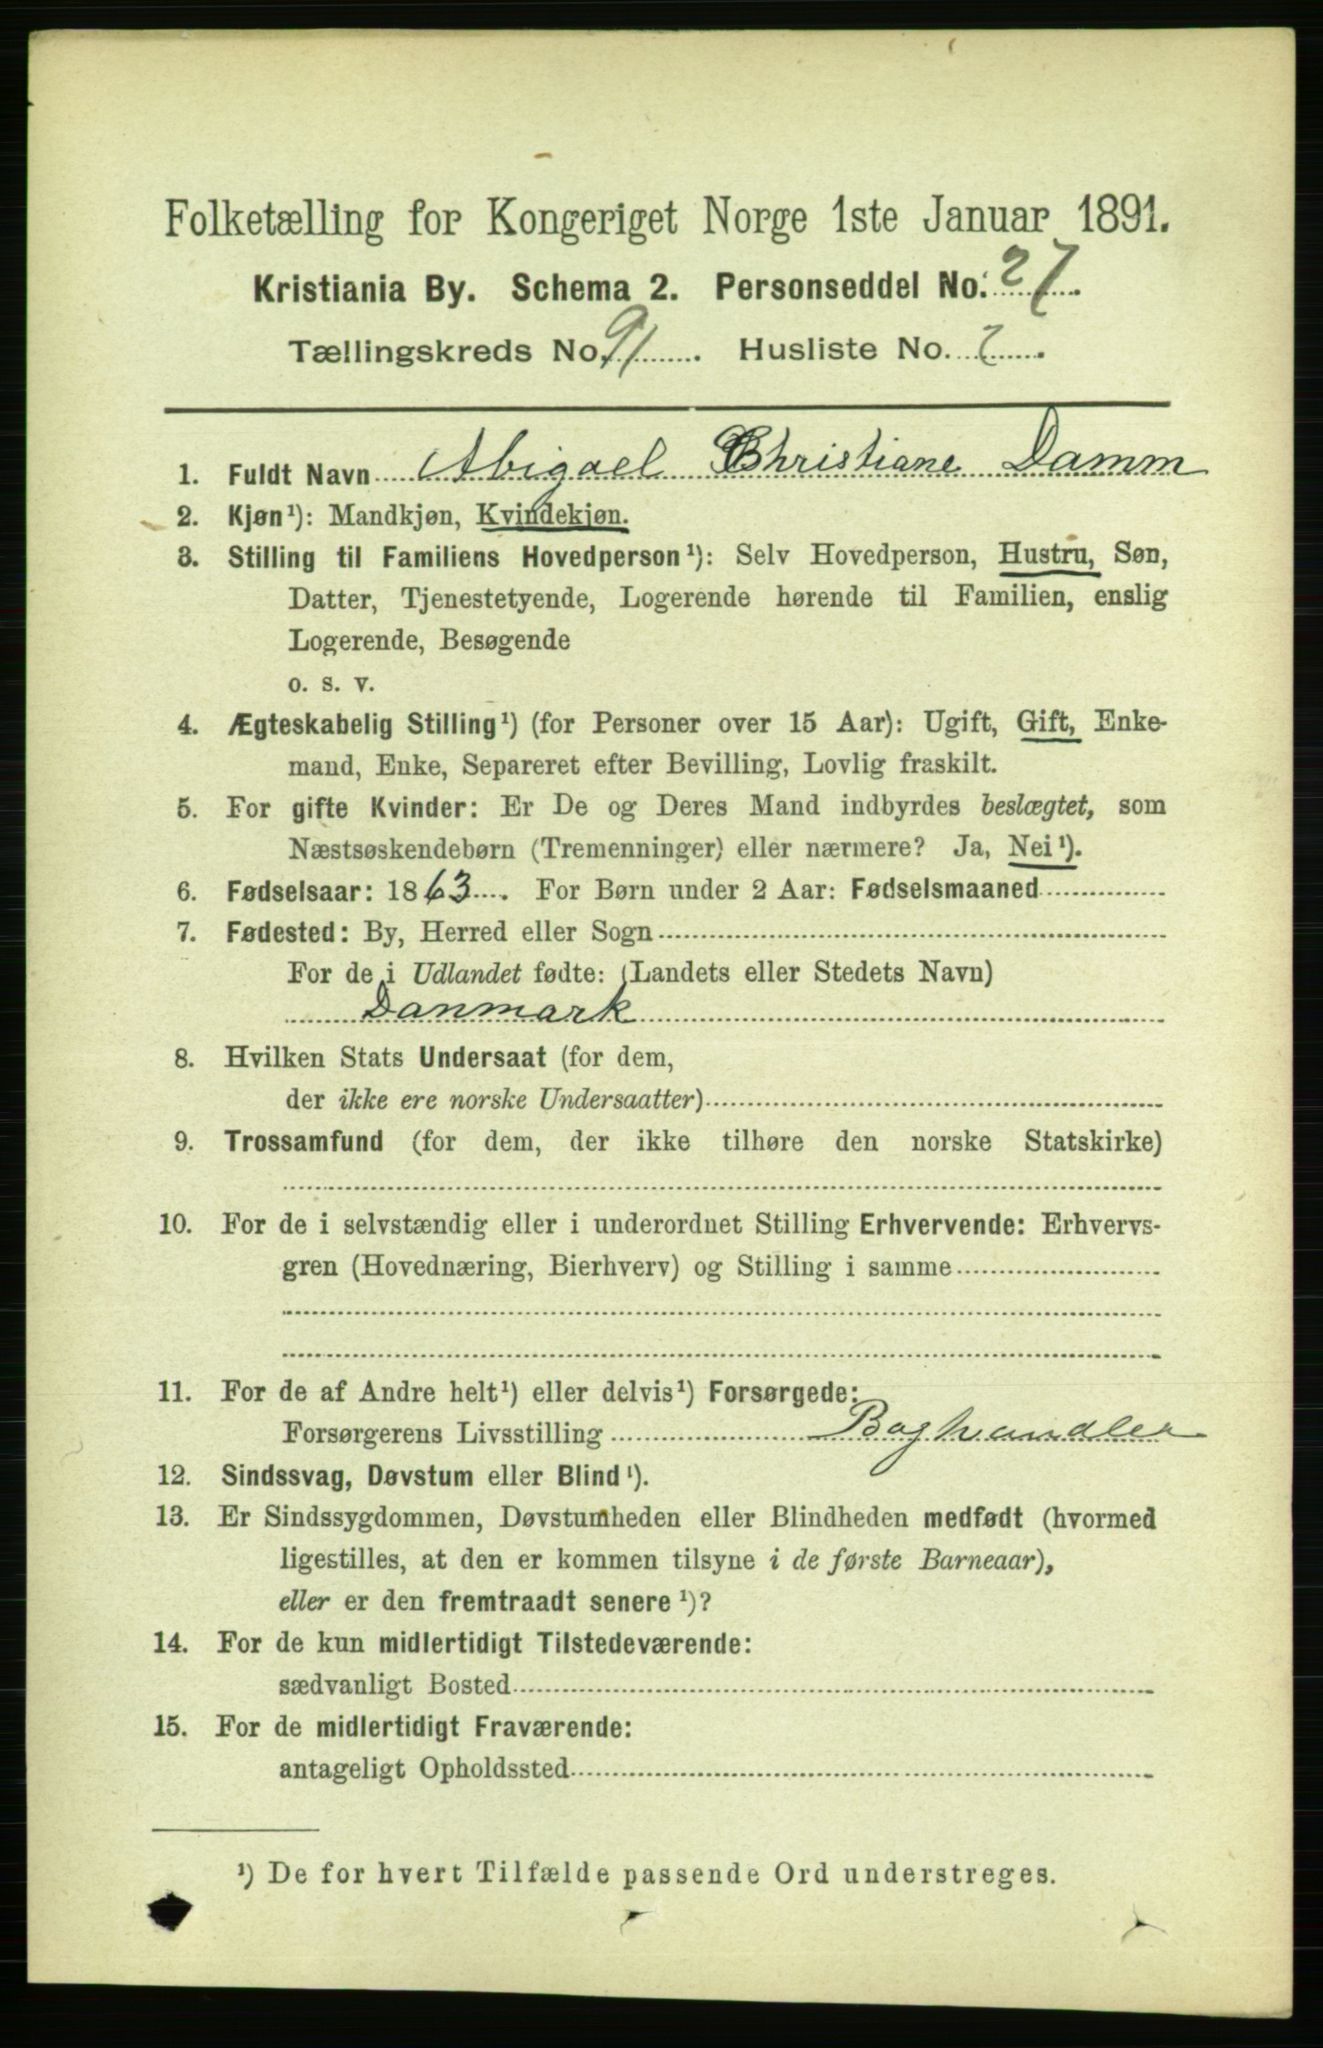 Folketælling for Kongeriget Norge 1ste Januar 1891.
Kristiania By. Schema 2. Personseddel No. 27.
Tællingskreds No. 91. Husliste No. 7.
1. Fuldt Navn Abigael Christiane Damm
2. Kjøn¹): Mandkjøn, Kvindekjøn.
3. Stilling til Familiens Hovedperson¹): Selv Hovedperson, Hustru, Søn,
Datter, Tjenestetyende, Logerende hørende til Familien, enslig
Logerende, Besøgende
o. s. v.
4. Ægteskabelig Stilling¹) (for Personer over 15 Aar): Ugift, Gift, Enke-
mand, Enke, Separeret efter Bevilling, Lovlig fraskilt.
5. For gifte Kvinder: Er De og Deres Mand indbyrdes beslægtet, som
Næstsøskendebørn (Tremenninger) eller nærmere? Ja, Nei¹).
6. Fødselsaar: 1863. For Børn under 2 Aar: Fødselsmaaned
7. Fødested: By, Herred eller Sogn
For de i Udlandet fødte: (Landets eller Stedets Navn)
Danmark
8. Hvilken Stats Undersaat (for dem,
der ikke ere norske Undersaatter)
9. Trossamfund (for dem, der ikke tilhøre den norske Statskirke)
10. For de i selvstændig eller i underordnet Stilling Erhvervende: Erhvervs-
gren (Hovednæring, Bierhverv) og Stilling i samme
11. For de af Andre helt¹) eller delvis¹) Forsørgede:
Forsørgerens Livsstilling Boghandler
12. Sindssvag, Døvstum eller Blind¹).
13. Er Sindssygdommen, Døvstumheden eller Blindheden medfødt (hvormed
ligestilles, at den er kommen tilsyne i de første Barneaar),
eller er den fremtraadt senere¹)?
14. For de kun midlertidigt Tilstedeværende:
sædvanligt Bosted
15. For de midlertidigt Fraværende:
antageligt Opholdssted
¹) De for hvert Tilfælde passende Ord understreges.